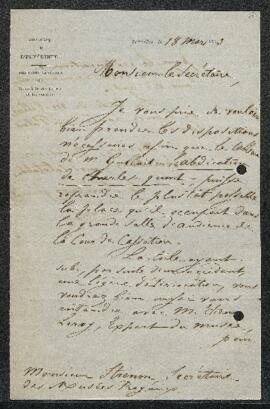 18 Mars
Monsieur le Secrétaire,
Je vous prie de vouloir
bien prendre les dispositions
nécessaires afin que le tableau
de M. Gallait: l'abdication
de Charles quint, puisse
reprendre le plus tôt possible
la place qu'il occupait dans
la grande salle d'audience de
la Cour de Cassation.
La toile ayant
subi, par suite d'un accident,
une légère détérioration, vous
voudrez bien
entendre avec M. Etienne
Leroy, Expert du musée,
pour
Monsieur Stienon, Secrétaire
des Musées Royaux